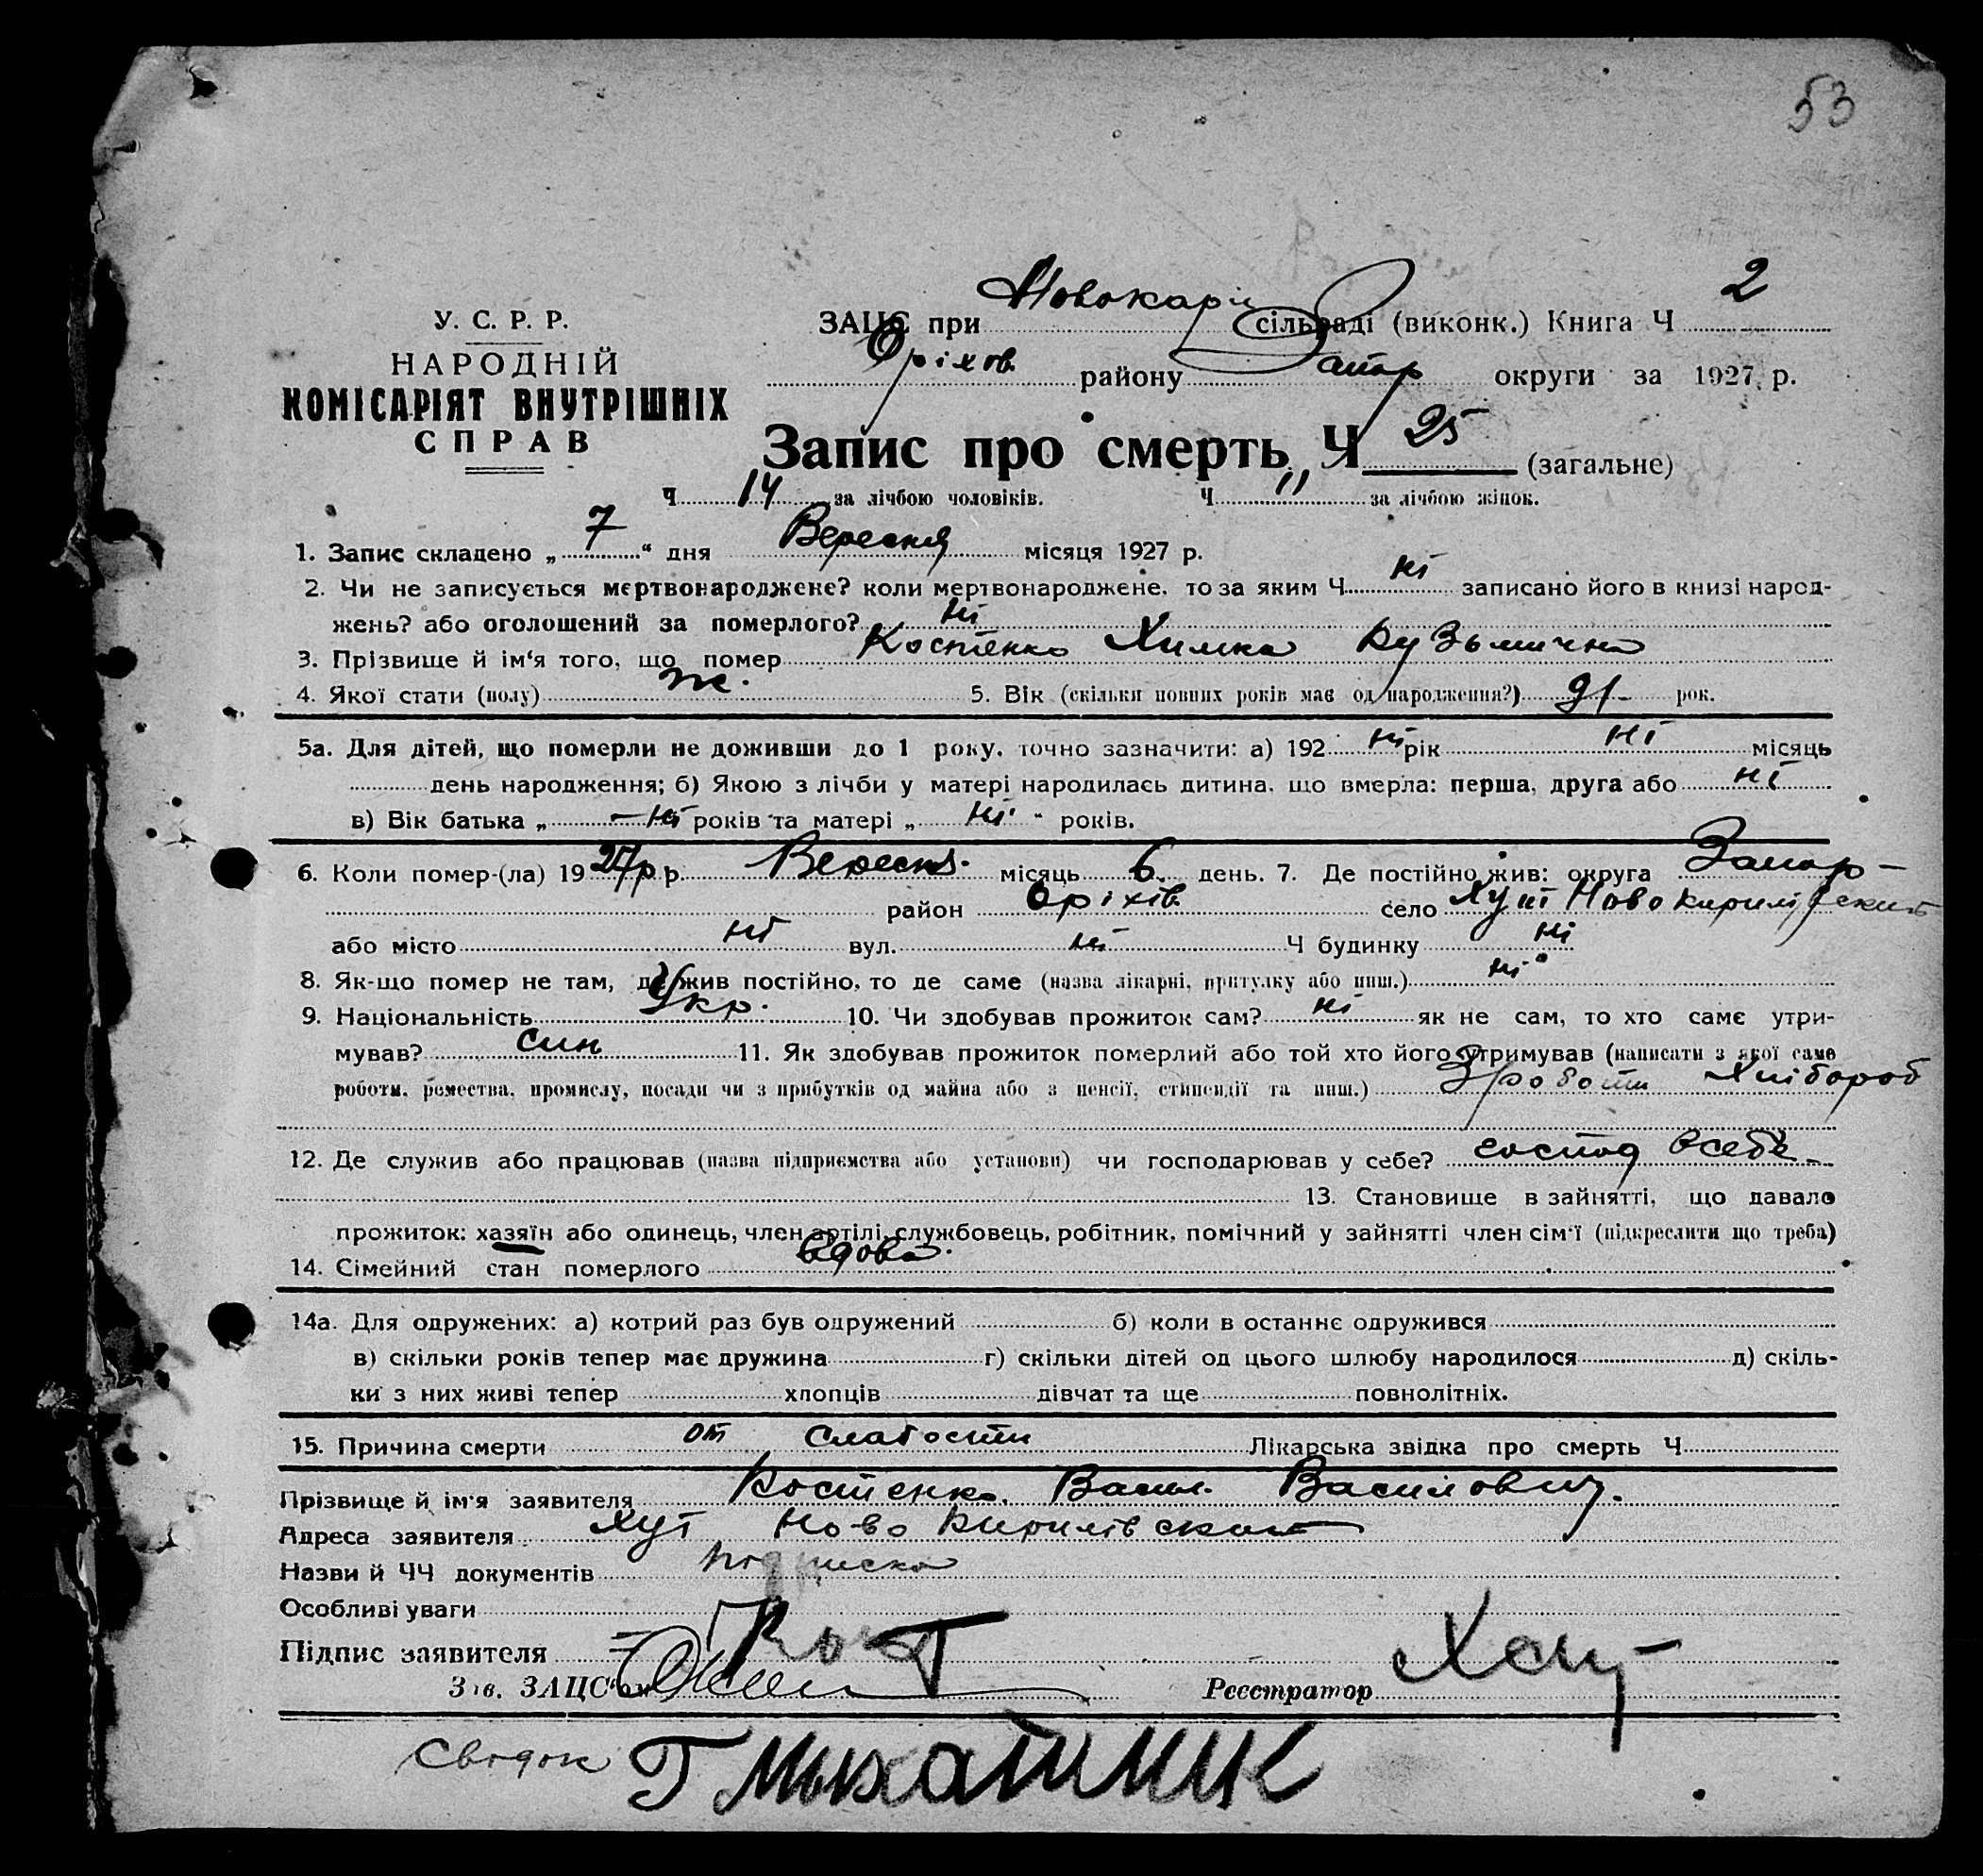 53
Новокарл 2
У. С. Р. Р. ЗАЦС при сільраді (виконк.) Книга Ч
НАРОДНІЙ Оріхов. району Запор округи за 1927 р.
КОМІСАРІЯТ ВНУТРІШНІХ
СПРАВ Запис про смерть Ч 25 (загальне)
Ч 14 за лічбою чоловіків. Ч 11 за лічбою жінок.
1. Запис складено „ 7 “ дня Вересня місяця 1927 р.
2. Чи не записується мертвонароджене? коли мертвонароджене, то за яким Ч ні записано його в книзі народ-
жень? або оголошений за померлого? ні
3. Прізвище й ім'я того, що помер Костенко Химка Кузьмична
4. Якої стати (полу) ж. 5. Вік (скільки повних років має од народження?) 91 рок.
5а. Для дітей, що померли не доживши до 1 року, точно зазначити: а) 192 ні рік ні місяць
день народження; б) Якою з лічби у матері народилась дитина, що вмерла: перша, друга або ні
в) Вік батька „ - ні років та матері „ ні “ років.
6. Коли помер-(ла) 19 27р р. Вересня місяць 6. день. 7. Де постійно жив: округа Запор-
район Оріхів село Хут Новокирилівский
або місто ні вул. ні Ч будинку ні
8. Як-що помер не там, де жив постійно, то де саме (назва лікарні, притулку або инш.) ні
9. Національність Укр. 10. Чи здобував прожиток сам? ні як не сам, то хто саме утри-
мував? син 11. Як здобував прожиток померлий або той хто його утримував (написати з якої саме
роботи, ремества, промислу, посади чи з прибутків од майна або з пенсії, стипендії та инш.) Зроботи Хлібороб
12. Де служив або працював (назва підприємства або установи) чи господарював у себе? господ всебе
13. Становище в зайнятті, що давало
прожиток: хазяїн або одинець, член артілі, службовець, робітник, помічний у зайнятті член сім'ї (підкреслити що треба)
14. Сімейний стан померлого вдова.
14а. Для одружених: а) котрий раз був одружений б) коли в останнє одружився
в) скільки років тепер має дружина г) скільки дітей од цього шлюбу народилося д) скіль-
ки з них живі тепер хлопців дівчат та ще повнолітніх.
15. Причина смерти от слабости Лікарська звідка про смерть Ч
Прізвище й ім'я заявителя Костенко Васил. Василович.
Адреса заявителя Хут Ново Кирилівский
Назви й ЧЧ документів подписка
Особливі уваги
Підпис заявителя Кост
Зав. ЗАЦС'ом Реєстратор
Свідок Г Михайлик